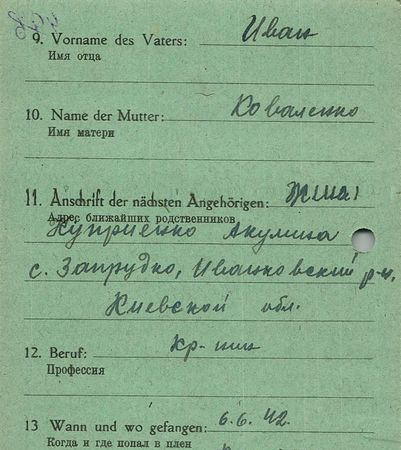 9. Vorname des Vaters: Иван
Имя отца
10. Name der Mutter: Коваленко
Имя матери
11. Anschrift der nächsten Angehörigen: Жена
Адрес ближайших родственников
Куприенко Акулина
с. Запрудко, Иванковский р-н,
Киевской обл.
12. Beruf: Кр-нин
Профессия
13 Wann und wo gefangen: 6.6.42.
Когда и где попал в плен